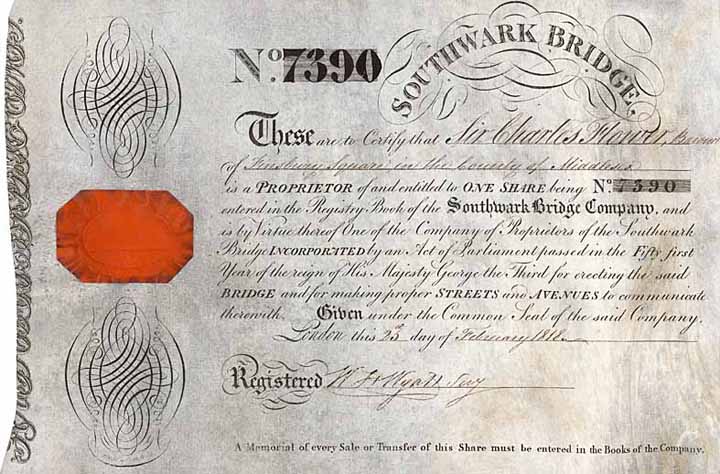 SOUTHWARK BRIDGE.
No. 7390
These are to Certify that Sir Charles Flower, Baronet
of Finsbury Square in the County of Middlesex
is a PROPRIETOR of and entitled to ONE SHARE being No. 7390
entered in the Registry Book of the Southwark Bridge Company, and
is by Virtue thereof One of the Company of Proprietors of the Southwark
Bridge INCORPORATED by an Act of Parliament passed in the Fifty first
Year of the reign of His Majesty George the Third for erecting the said
BRIDGE and for making proper STREETS and AVENUES to communicate
therewith. Given under the Common Seal of the said Company.
London this 23d day of February 1818.
Registered Wyatt Secy
A Memorial of every Sale or Transfer of this Share must be entered in the Books of the Company.